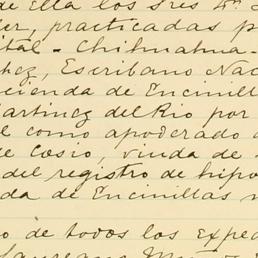 de Ella los Sres
practicadas
Chihuahua
Escribano Nac
cienda de Encinill
Martinez del Rio por
como apoderado
de Cosio, viuda de
del registro de hipo
da de Encinillas
o de todos los Exped
Laureano Muñ